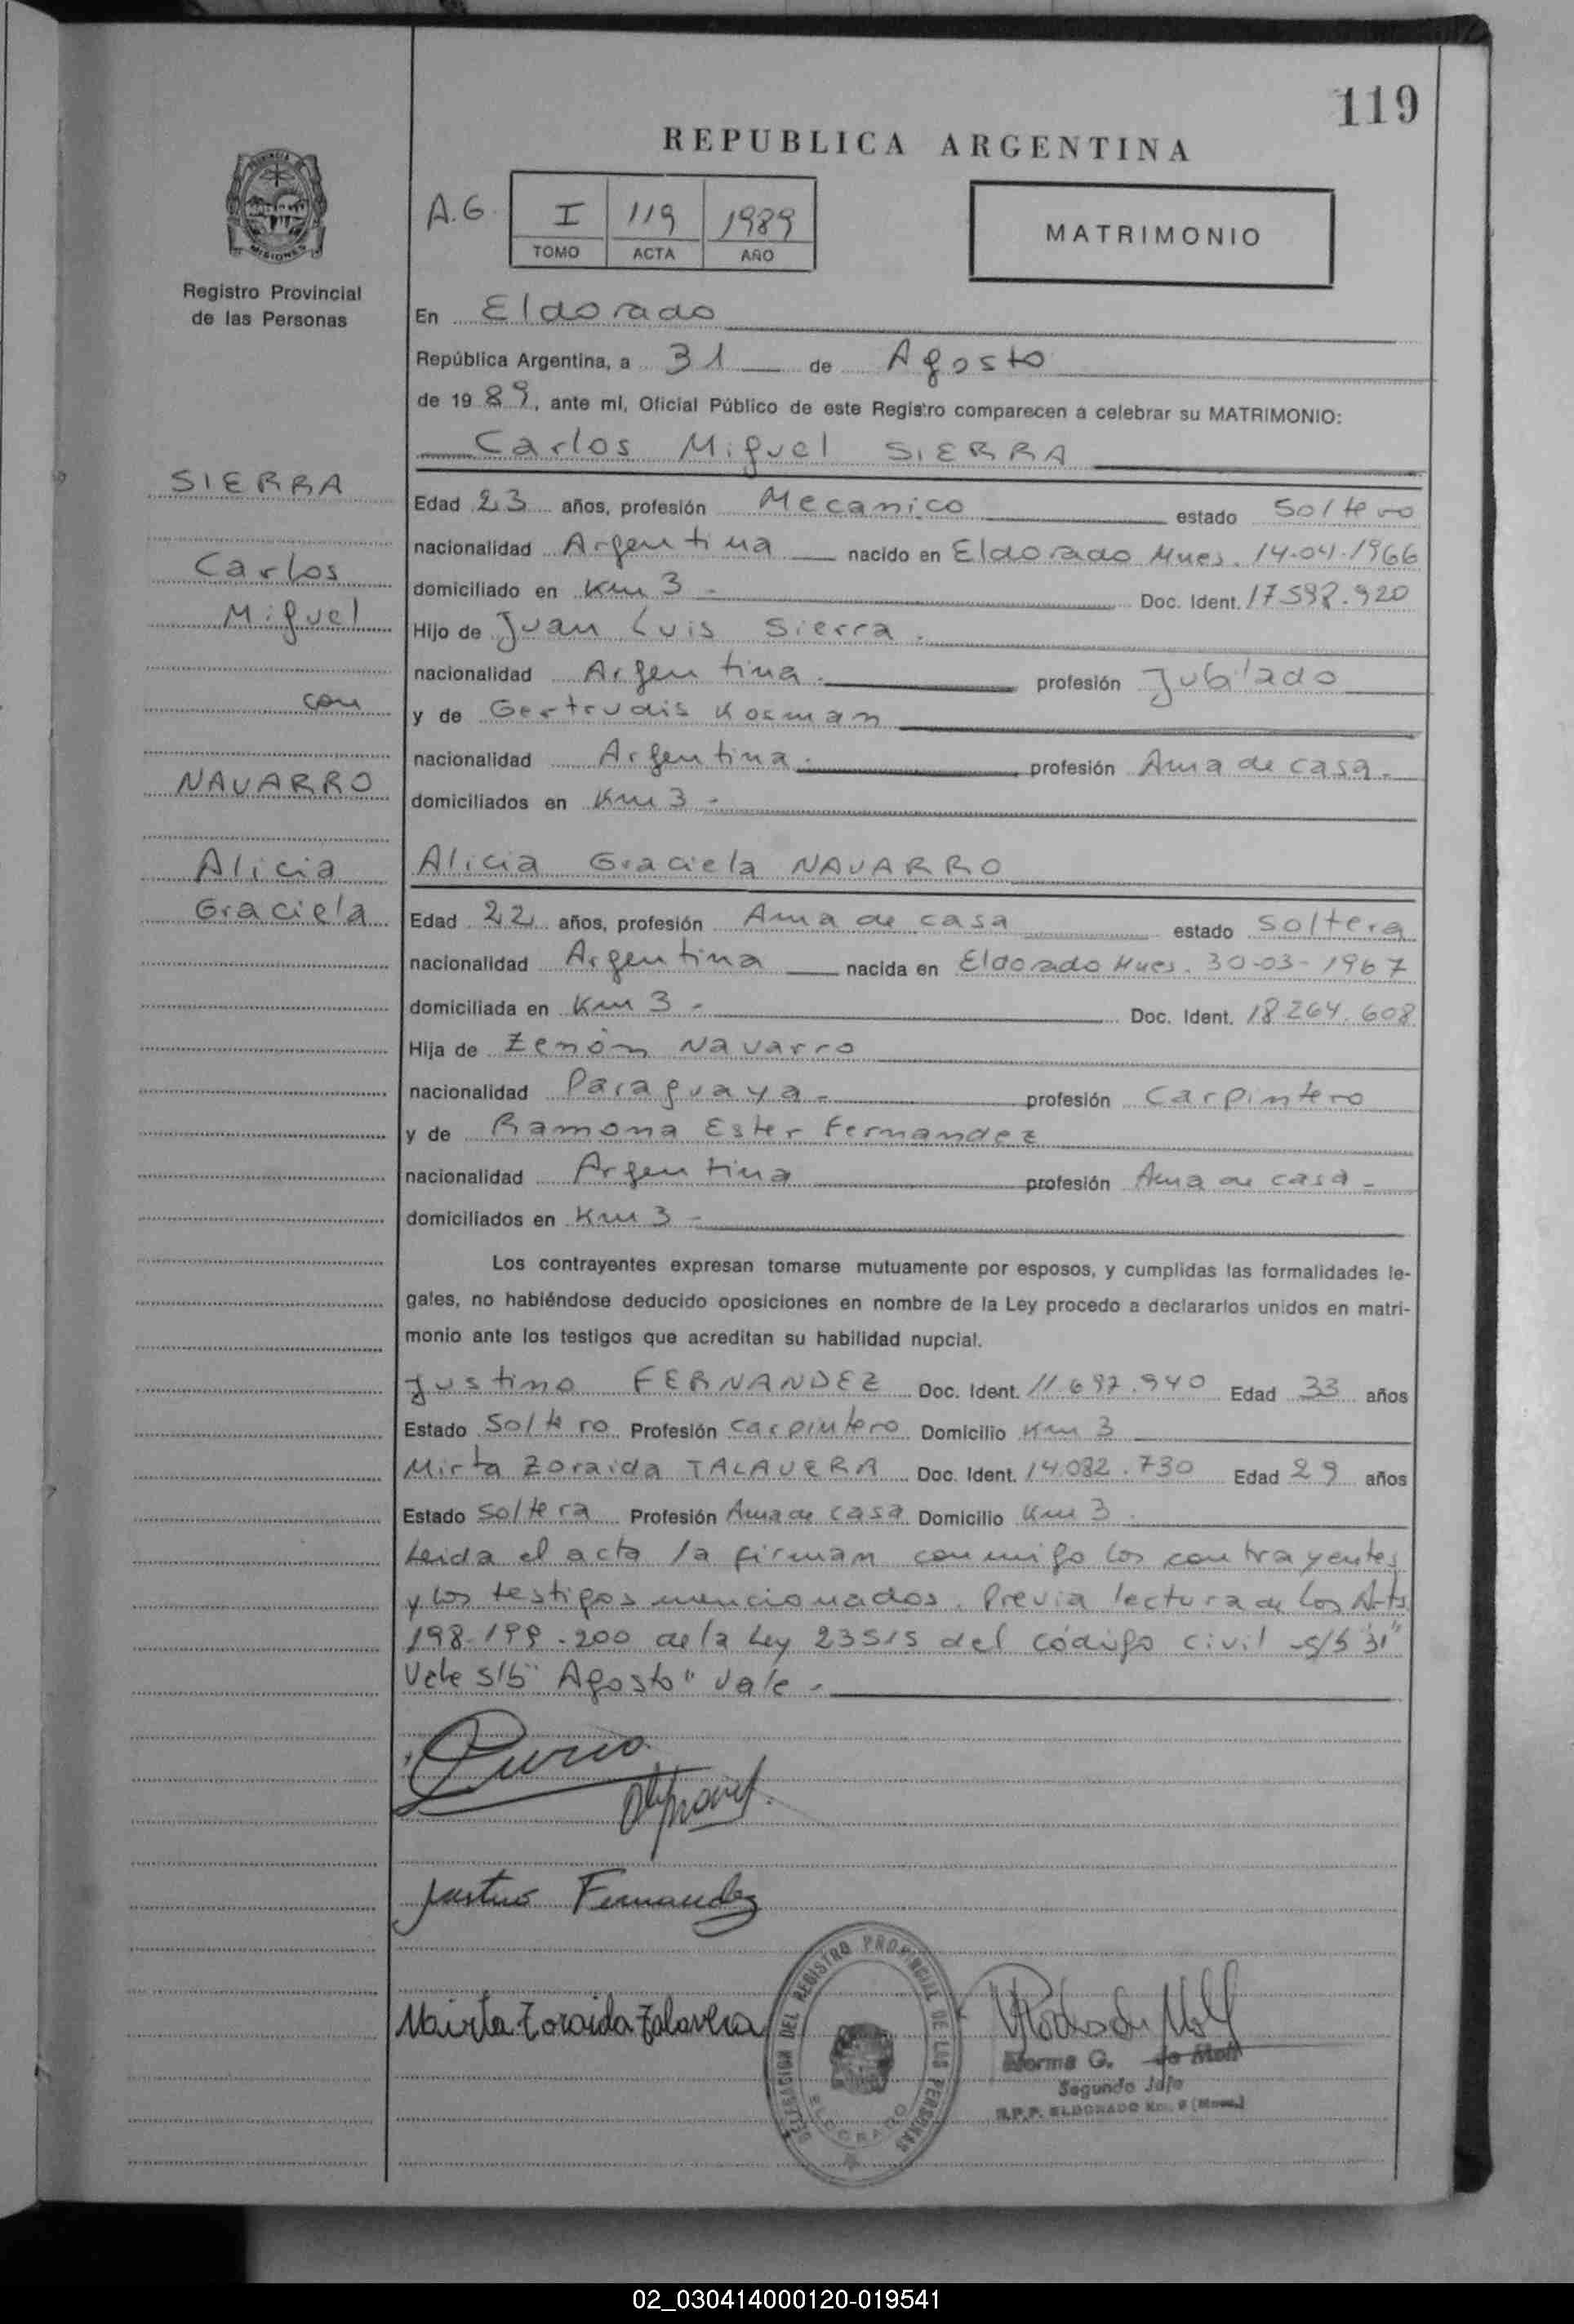 119
REPUBLICA ARGENTINA
PROVINCIA DE
MISIONES
Registro Provincial
de las Personas
A.G.
I 119 1989
TOMO ACTA AÑO
MATRIMONIO
En Eldorado
República Argentina, a 31 de Agosto
de 19 89, ante mí, Oficial Público de este Registro comparecen a celebrar su MATRIMONIO:
Carlos Miguel SIERRA
SIERRA
Carlos
Miguel
con
NAVARRO
Alicia
Graciela
Edad 23 años, profesión Mecanico estado Soltero
nacionalidad Argentina nacido en Eldorado Mnes. 14-04-1966
domiciliado en Km 3 - Doc. Ident. 17.598.920
Hijo de Juan Luis Sierra.
nacionalidad Argentina. profesión Jubilado
y de Gertrudis Kosman
nacionalidad Argentina. profesión Ama de casa.
domiciliados en Km 3 -
Alicia Graciela NAVARRO
Edad 22 años, profesión Ama de casa estado soltera
nacionalidad Argentina nacida en Eldorado Mnes. 30-03-1967
domiciliada en Km 3 - Doc. Ident. 18.264.608
Hija de Zenón Navarro
nacionalidad Paraguaya - profesión Carpintero
y de Ramona Ester Fernandez
nacionalidad Argentina profesión Ama de casa -
domiciliados en Km 3 -
Los contrayentes expresan tomarse mutuamente por esposos, y cumplidas las formalidades le-
gales, no habiéndose deducido oposiciones en nombre de la Ley procedo a declararlos unidos en matri-
monio ante los testigos que acreditan su habilidad nupcial.
Justino FERNANDEZ Doc. Ident. 11.697.940 Edad 33 años
Estado Soltero Profesión carpintero Domicilio Km 3
Mirta Zoraida TALAVERA Doc. Ident. 14.082.730 Edad 29 años
Estado soltera Profesión Ama de casa Domicilio Km 3.
Leida el acta la firman conmigo los contrayentes
y los testigos mencionados. Previa lectura de los Arts
198-199-200 de la Ley 23515 del código civil -s/b "31"
Vale s/b "Agosto" vale -
Justino Fernandez
Mirta Zoraida Talavera
DELEGACION DEL REGISTRO PROVINCIAL DE LAS PERSONAS
ELDORADO
Norma G. de Moll
Segundo Jefe
R.P.P. ELDORADO Km. (Mnes.)
02_030414000120-019541